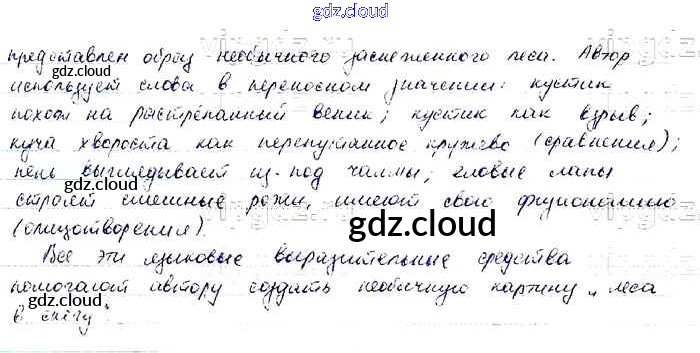 gdz.cloud
представлен образ необычного заснеженного леса. Автор
использует слова в переносном значении: кустик
похож на растрёпанный веник; кустик как взрыв;
куча хвороста как перепутанное кружево (сравнения);
пень выглядывает из-под чалмы; еловые лапы
строят смешные рожи, имеют свою физиономию
(олицетворения).
Все эти языковые выразительные средства
помогают автору создать необычную картину „леса
в снегу"
gdz.cloud
gdz.cloud
gdz.cloud
gdz.cloud
gdz.cloud
gdz.cloud